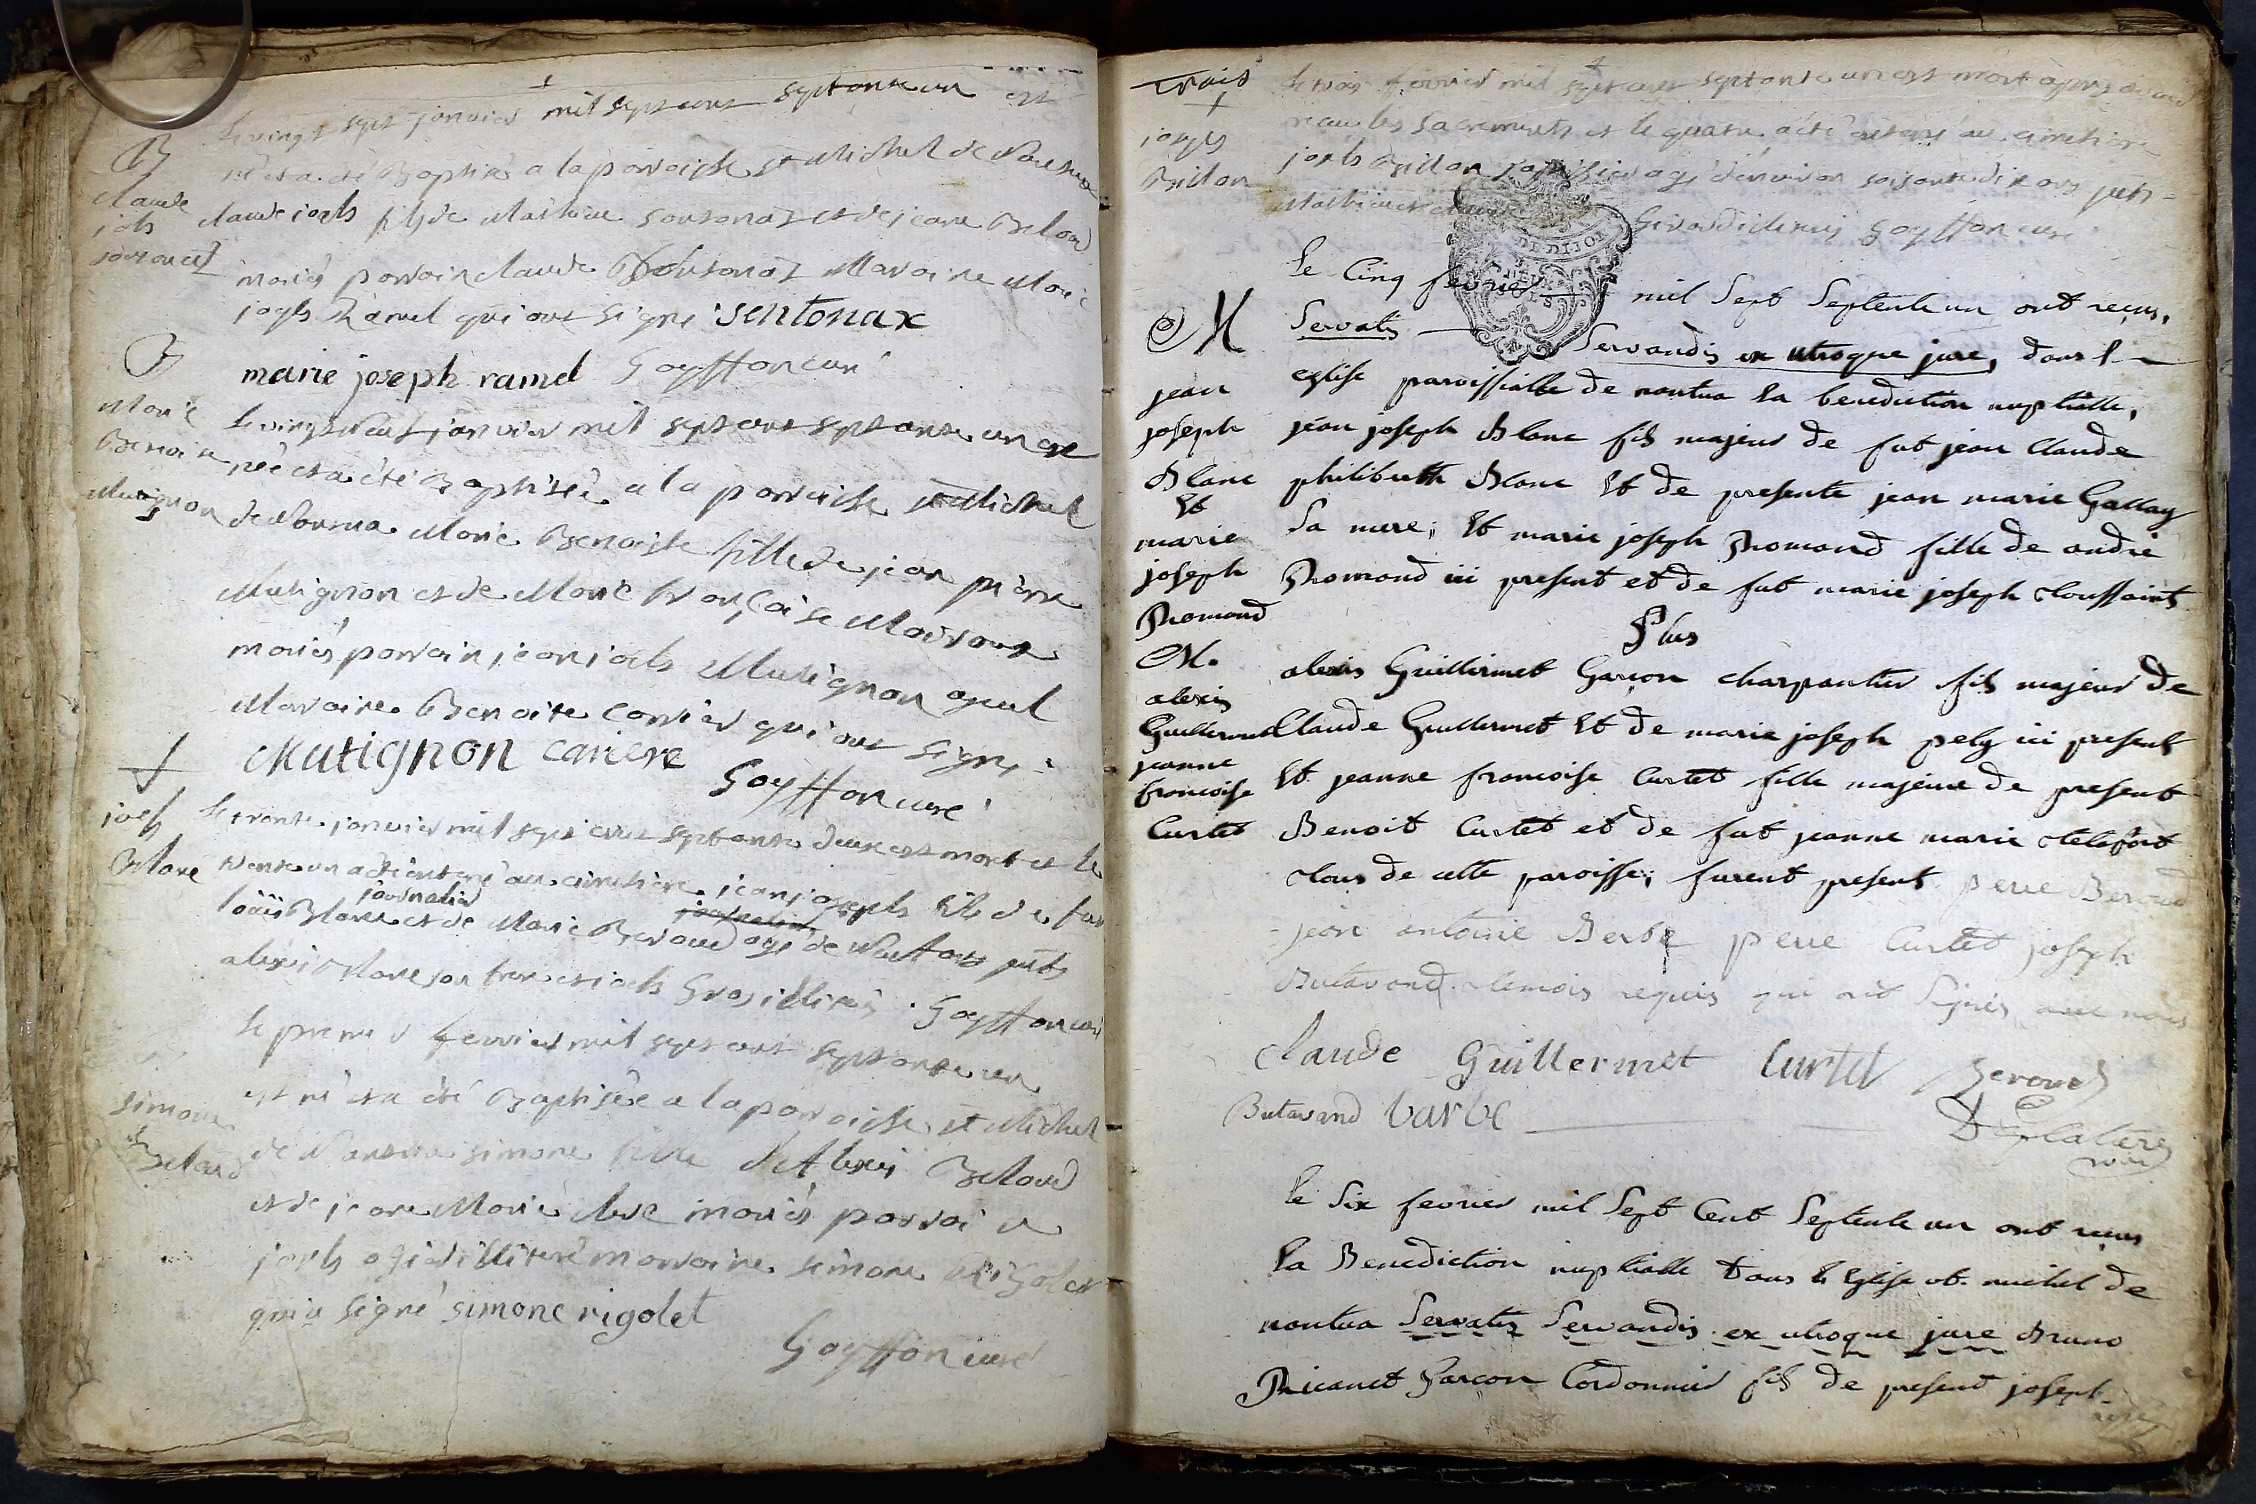 B
claude
jph
sontonax
le vingt sept janvier mil sept cent septante un est
né et a été Baptisé a la parroisse st Michel de Nantua
claude joseph fils de Mathieu sontonax et de jeane Beloud
mariés parrain claude sontonax Maraine Marie
joseph Ramel qui ont signé sentonax
marie joseph ramel Goyffon curé
B
Marie
Benoite
Mutignon
le vingt neuf janvier mil sept cent septante un est
née et a été Baptisée a la parroisse st Michel
de Nantua Marie Benoiste fille de jean pierre
Mutignon et de Marie françoise
mariés parrain jean joseph Mutignon ayeul
Maraine Benoite carrier qui ont signé
Mutignon cariere
Goyffon curé
joseph
Blanc
le trente janvier mil sept cent septante deux est mort et le
trente un a été enterré au cimetiere jean joseph fils de feu
journalier
loüis Blanc et de Marie Beroud agé de neuf ans pnts
alexis Blanc son frere et joseph Gros illitérés Goyffon curé
simone
Beloud
le premier fevrier mil sept cent septante un
est né et a été Baptisée a la parroisse st Michel
de Nantua simone fille d'Alexis Beloud
et de jeane Marie mariés parrain
joseph illiteré marraine simone Rigolet
qui a signé simone rigolet
Goyffon curé
trois
joseph
Brillon
le trois fevrier mil sept cent septante un est mort apres avoir
reçu les sacrements et le quatre a été enterré au cimetiere
joseph Brillon agé d'environ soixante dix ans pnts
Mathieu Goyffon curé
DE DIJON
DEUX
SOLS
M
jean
joseph
Blanc
Et
marie
joseph
Romand
le Cinq fevrier mil Sept Septente un ont reçus,
Servatis Servandis ex utroque jure, dans l
eglise paroissialle de nantua la benediction nuptialle,
jean joseph Blanc fils majeur de fut jean Claude
philiberth Blanc Et de presente jean marie Gallay
Sa mere; Et marie joseph Romand fille de andré
Romand ici present et de fut marie joseph toussaint
Plus
M.
alexis
Guillermet
jeanne
francoise
Curtet
alexis Guillermet Garçon charpantier fils majeur de
Claude Guillermet Et de marie joseph pely ici present
Et jeanne francoise Curtet fille majeure de present
Benoit Curtet et de fut jeanne marie
tous de cette paroisse; furent present pere Beroud
jean antoine Berbe pere Curtet joseph
Butavand temois requis qui ont Signés avec nous
Claude Guillermet Curtet Beroud
Butavand barbe
Desplatere
vic
le Six fevrier mil Sept Cent Septente un ont reçus
la Benediction nuptialle Dans l Eglise st. michel de
nantua Servatis Servandis ex utroque jure Bruno
Ricanet Garçon Cordonnier fils de present joseph